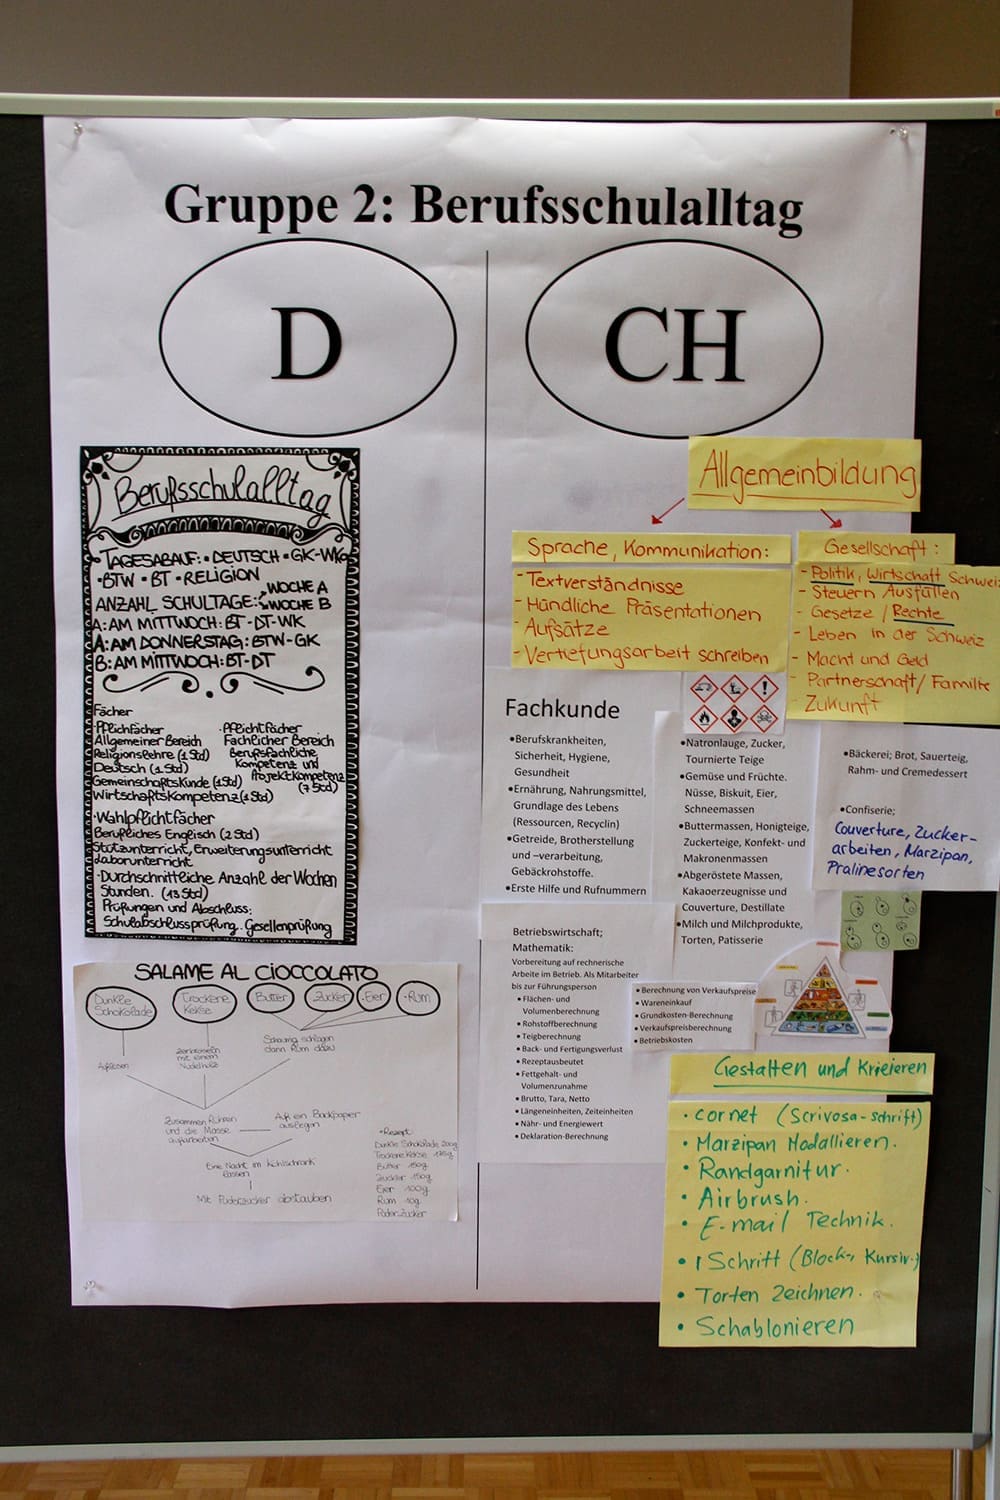 Gruppe 2: Berufsschulalltag
D
CH
Berufsschulalltag
• TAGESABAUF: • DEUTSCH • GK-WK
• BTW • BT • RELIGION
ANZAHL SCHULTAGE: WOCHE A
WOCHE B
A: AM MITTWOCH: BT-DT-WK
A: AM DONNERSTAG: BTW-GK
B: AM MITTWOCH: BT-DT
Fächer
• Pflichtfächer
Allgemeiner Bereich
Religionslehre (1 Std)
Deutsch (1 Std)
Gemeinschaftskunde (1 Std)
Wirtschaftskompetenz (1 Std)
• Pflichtfächer
Fachlicher Bereich
Berufsfachliche
Kompetenz und
Projektkompetenz
(7 Std)
• Wahlpflichtfächer
Berufliches Englisch (2 Std)
Stützunterricht, Erweiterungsunterricht
Laborunterricht
• Durchschnittliche Anzahl der Wochen
Stunden. (13 Std)
Prüfungen und Abschluss:
Schulabschlussprüfung. Gesellenprüfung
SALAME AL CIOCCOLATO
Dunkle
Schokolade
Trockene
Kekse
Butter
Zucker
Eier
Rum
Auflösen
Zerbröseln
mit einem
Nudelholz
Schaumig schlagen
dann Rum dazu
Zusammen rühren
und die Masse
aufarbeiten
Auf ein Backpapier
auslegen
Eine Nacht im Kühlschrank
lassen
Mit Puderzucker abstauben
• Rezept
Dunkle Schokolade 200g
Trockene Kekse 175g
Butter 150g
Zucker 150g
Eier 100g
Rum 10g
Puderzucker
Allgemeinbildung
Sprache, Kommunikation:
- Textverständnisse
- Mündliche Präsentationen
- Aufsätze
- Vertiefungsarbeit schreiben
Gesellschaft:
- Politik, Wirtschaft Schweiz
- Steuern Ausfällen
- Gesetze / Rechte
- Leben in der Schweiz
- Macht und Geld
- Partnerschaft / Familie
- Zukunft
Fachkunde
• Berufskrankheiten,
Sicherheit, Hygiene,
Gesundheit
• Ernährung, Nahrungsmittel,
Grundlage des Lebens
(Ressourcen, Recyclin)
• Getreide, Brotherstellung
und –verarbeitung,
Gebäckrohstoffe.
• Erste Hilfe und Rufnummern
• Natronlauge, Zucker,
Tournierte Teige
• Gemüse und Früchte.
Nüsse, Biskuit, Eier,
Schneemassen
• Buttermassen, Honigteige,
Zuckerteige, Konfekt- und
Makronenmassen
• Abgeröstete Massen,
Kakaoerzeugnisse und
Couverture, Destillate
• Milch und Milchprodukte,
Torten, Patisserie
• Bäckerei; Brot, Sauerteig,
Rahm- und Cremedessert
• Confiserie;
Couverture, Zucker-
arbeiten, Marzipan,
Pralinesorten
Betriebswirtschaft;
Mathematik:
Vorbereitung auf rechnerische
Arbeite im Betrieb. Als Mitarbeiter
bis zur Führungsperson
• Flächen- und
Volumenberechnung
• Rohstoffberechnung
• Teigberechnung
• Back- und Fertigungsverlust
• Rezeptausbeutet
• Fettgehalt- und
Volumenzunahme
• Brutto, Tara, Netto
• Längeneinheiten, Zeiteinheiten
• Nähr- und Energiewert
• Deklaration-Berechnung
• Berechnung von Verkaufspreise
• Wareneinkauf
• Grundkosten-Berechnung
• Verkaufspreisberechnung
• Betriebskosten
Gestalten und Krieieren
• cornet (Scrivosa-schrift)
• Marzipan Modallieren.
• Randgarnitur.
• Airbrush.
• E-mail Technik.
• 1 Schrift (Block-, Kursiv.)
• Torten zeichnen.
• Schablonieren